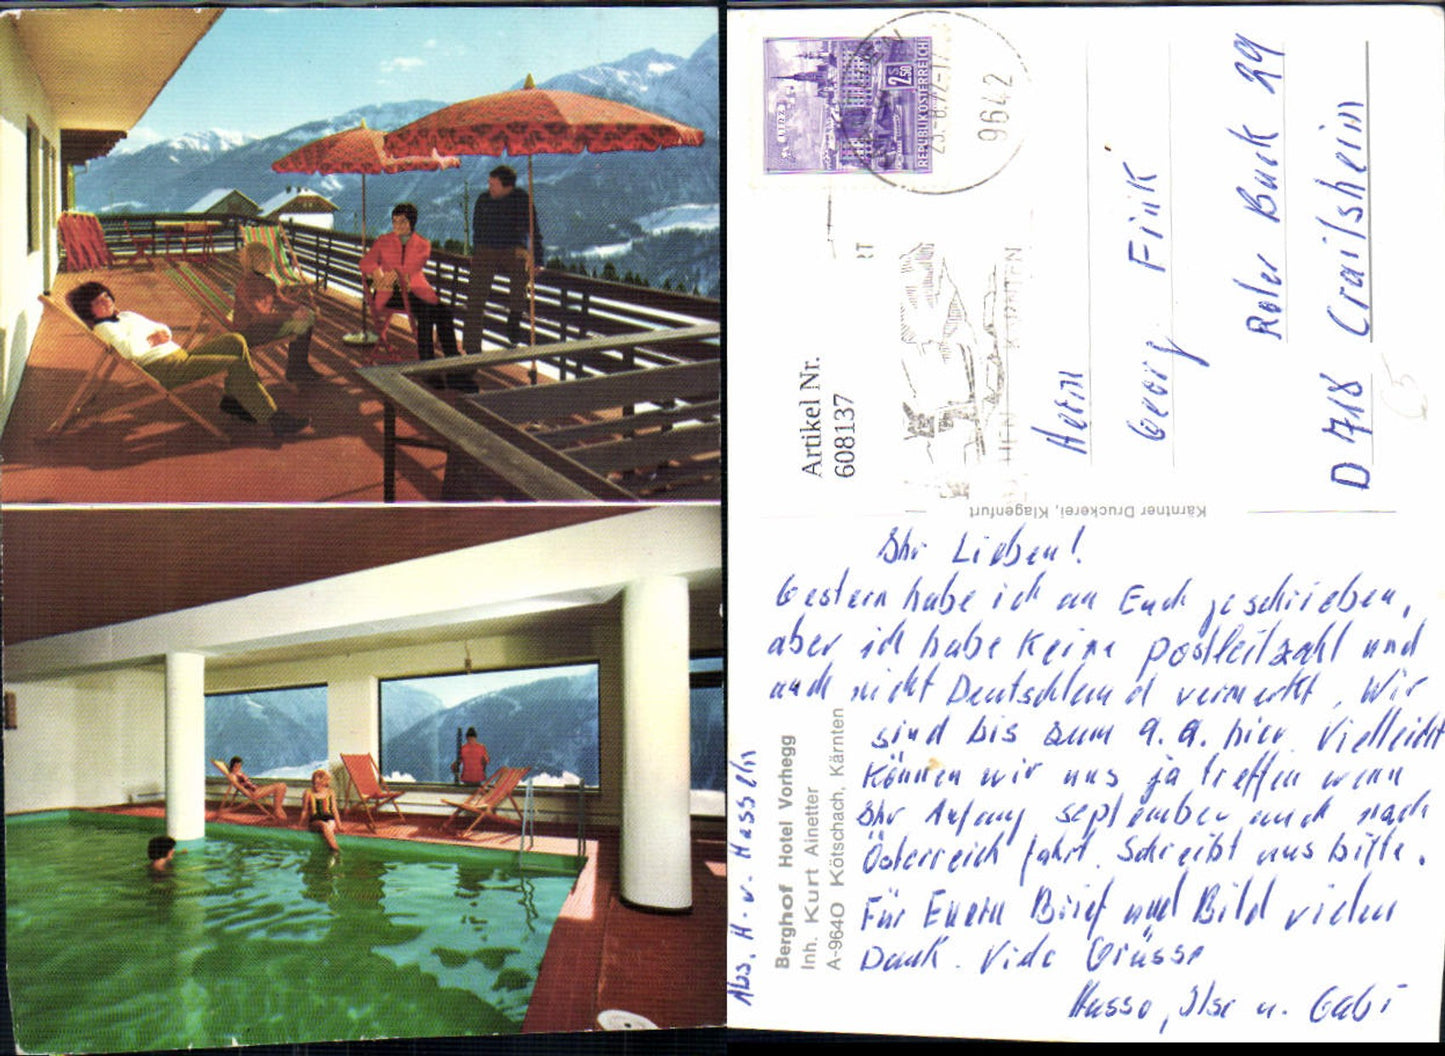 LINZ
2 S 50
REPUBLIK ÖSTERREICH
25.-8.72-17
9642
KÄRNTEN
Artikel Nr.
608137
Herrn
Georg Fink
Roter Buck 29
D 718 Crailsheim
Kärntner Druckerei, Klagenfurt
Ihr Lieben!
Gestern habe ich an Euch geschrieben,
aber ich habe keine Postleitzahl und
auch nicht Deutschland vermerkt. Wir
sind bis zum 9.9. hier. Vielleicht
können wir uns ja treffen wenn
Ihr Anfang September auch nach
Österreich fahrt. Schreibt uns bitte.
Für Euern Brief und Bild vielen
Dank. Viele Grüsse
Husso, Ilse u. Gabi
Abs. H. v. Hasseln
Berghof Hotel Vorhegg
Inh. Kurt Ainetter
A-9640 Kötschach, Kärnten